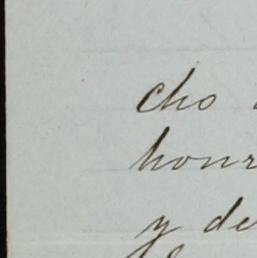 cho
honr
y de